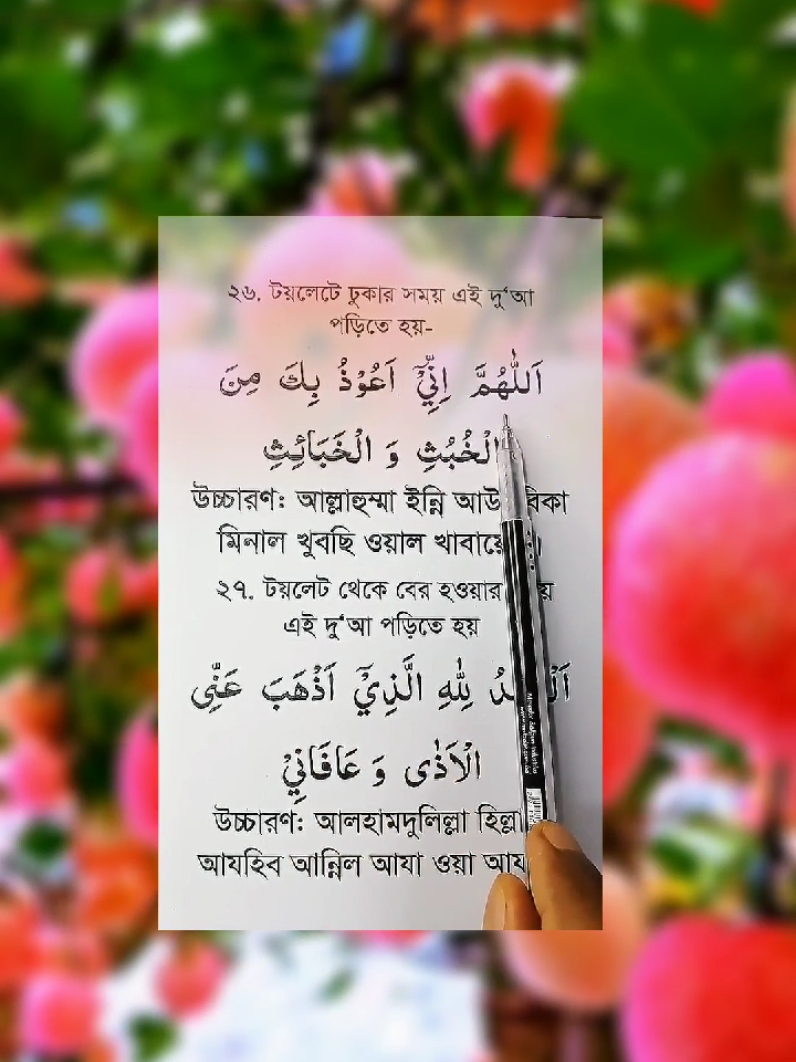 ২৬. টয়লেটে ঢুকার সময় এই দু‘আ
পড়িতে হয়-
اَللّٰهُمَّ اِنِّيْٓ اَعُوْذُ بِكَ مِنَ
الْخُبُثِ وَ الْخَبَائِثِ
উচ্চারণ: আল্লাহুম্মা ইন্নি
মিনাল খুবছি ওয়াল
২৭. টয়লেট থেকে বের হওয়ার
এই দু‘আ পড়িতে হয়
لِلّٰهِ الَّذِيْٓ اَذْهَبَ عَنِّى
الْاَذٰى وَ عَافَانِيْ
উচ্চারণ: আলহামদুলিল্লা
আযহিব আন্নিল আযা ওয়া